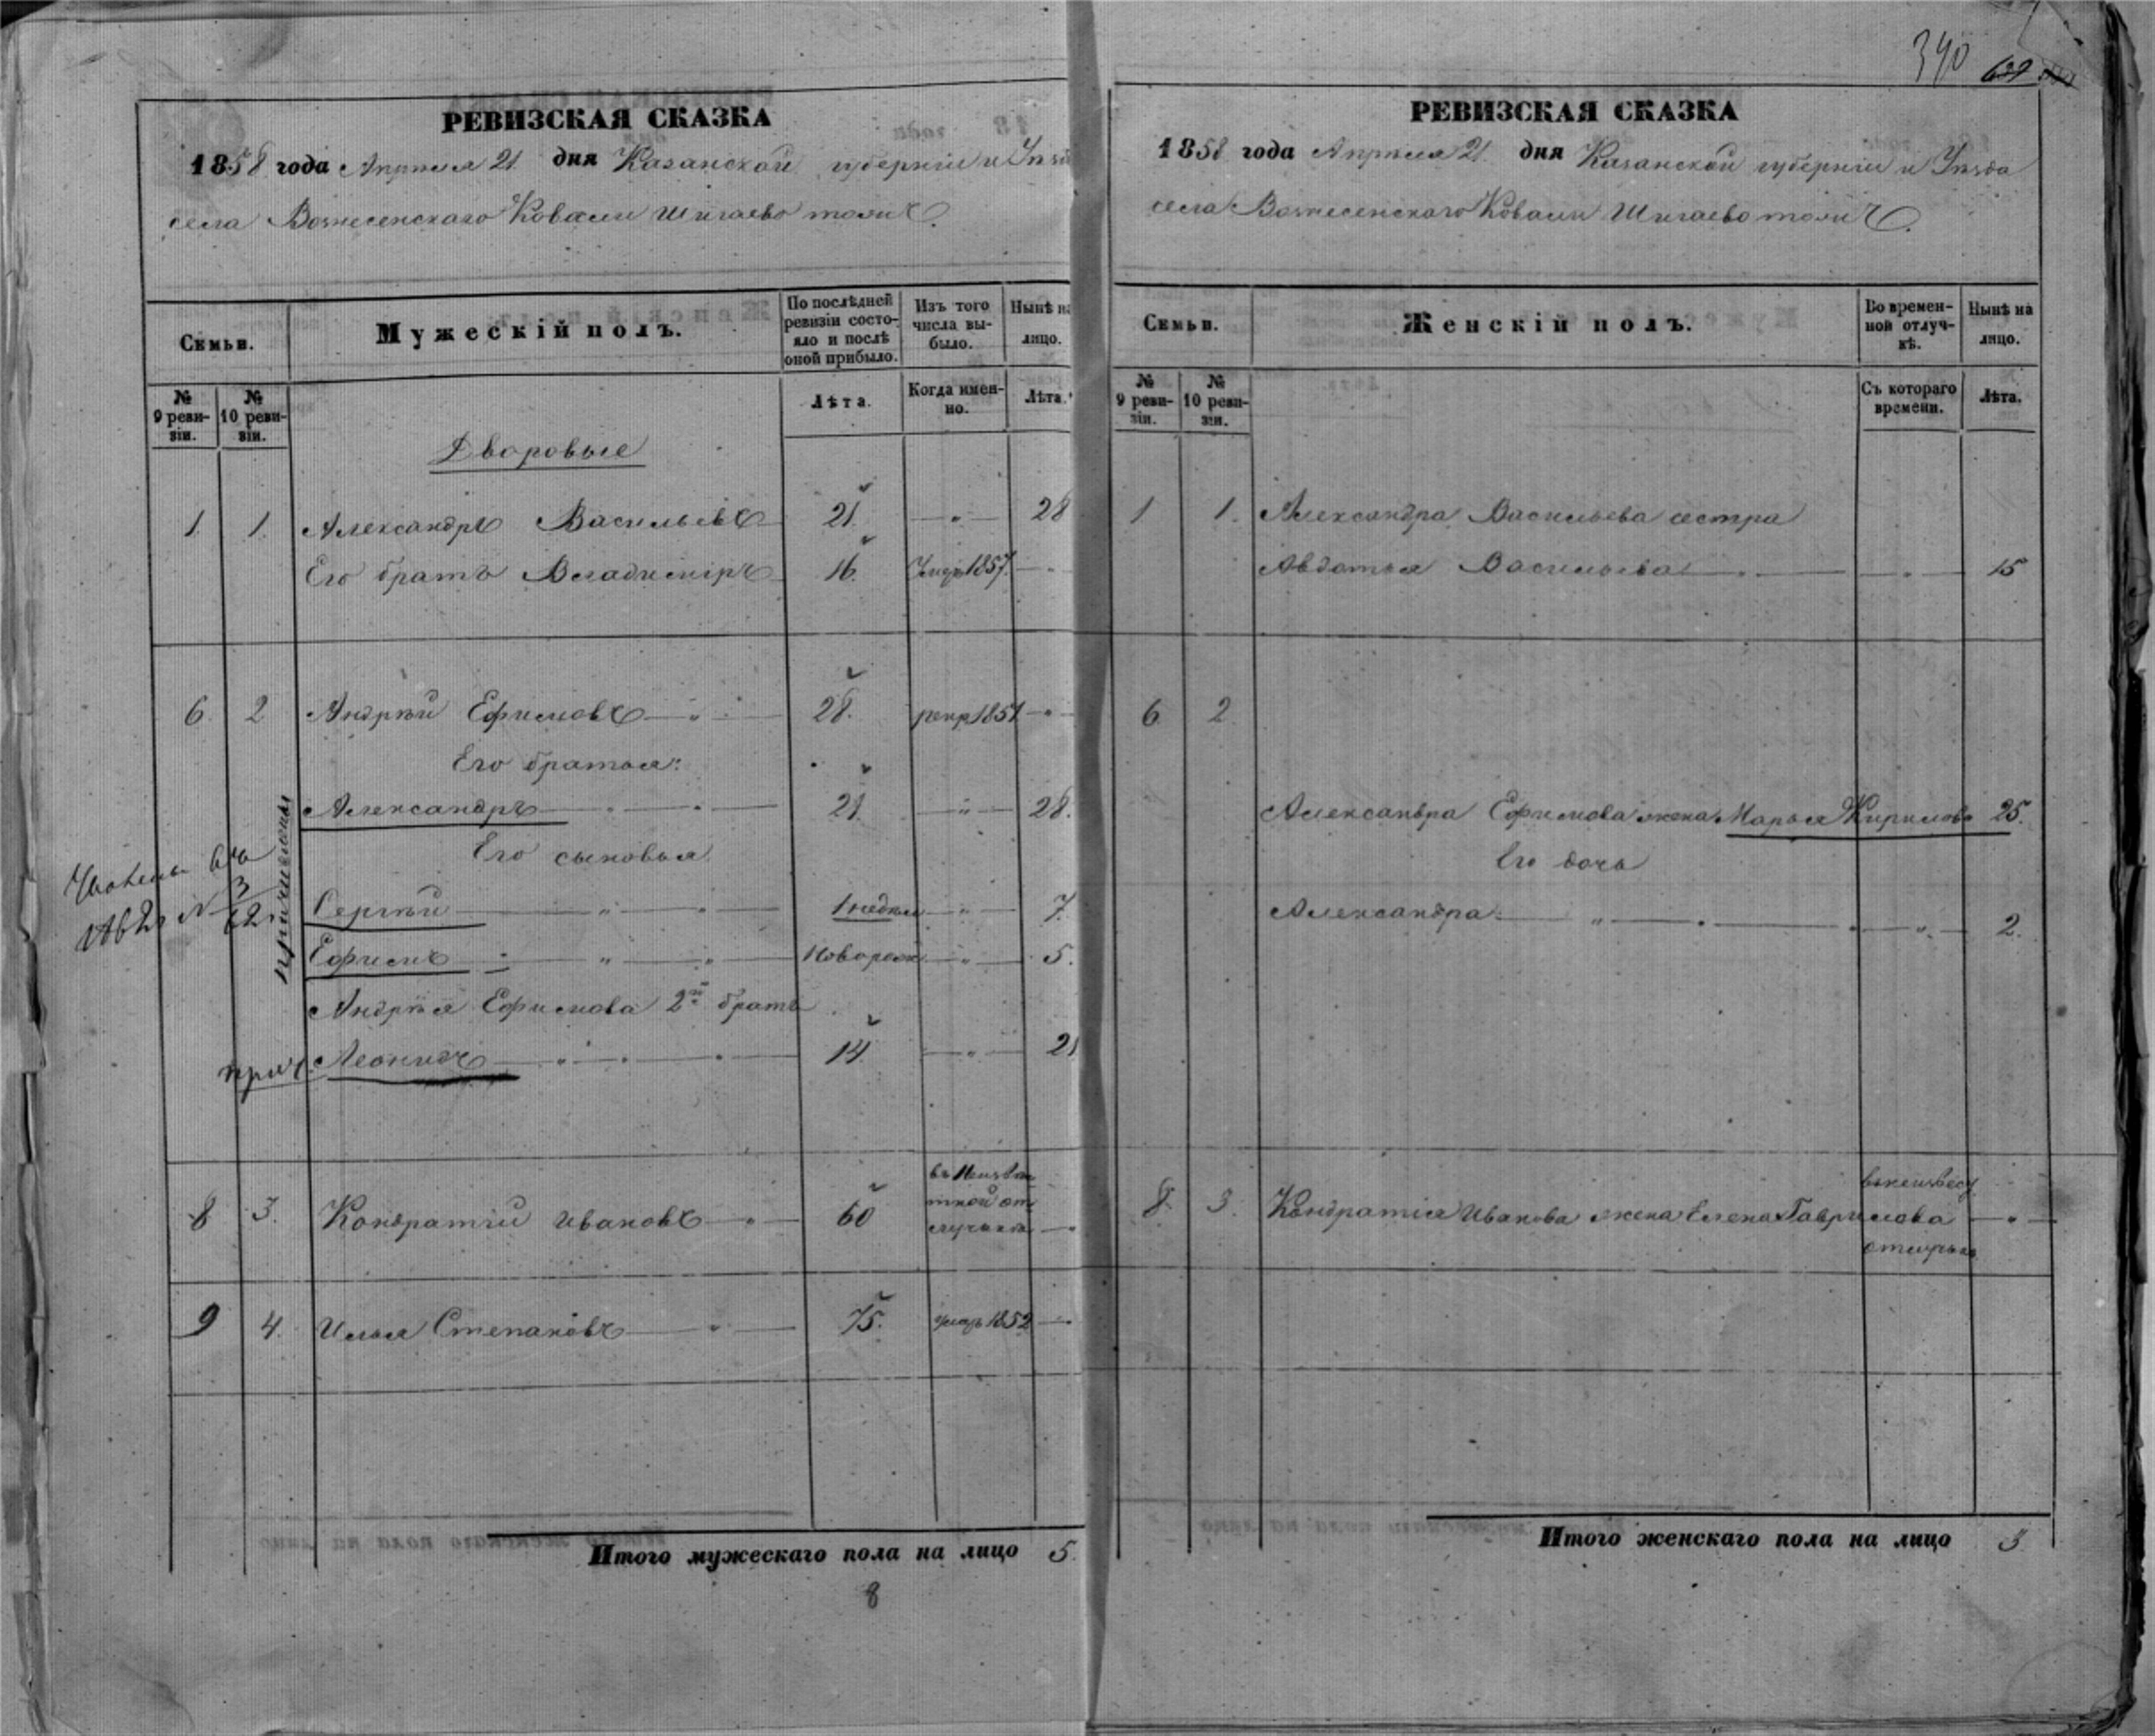 390
РЕВИЗСКАЯ СКАЗКА
1858 года Апреля 21 дня Казанской губерніи и Уѣзда
села Вознесенскаго Ковали Шигаево тожъ.
Семьи.
Мужескій полъ.
По послѣдней ревизіи состояло и послѣ оной прибыло.
Изъ того числа выбыло.
Нынѣ на лицо.
№ 9 ревизіи.
№ 10 ревизіи.
Лѣта.
Когда именно.
Лѣта.
Дворовые
1. 1. Александръ Васильевъ 21. — " — 28
Его братъ Владиміръ 16. Умеръ 1857. — "
6. 2 Андрѣй Ефимовъ — " — 28. рекр. 1851 — " —
Его братья:
Александръ — " — 21. — " — 28.
Его сыновья
Сергѣй — " — 1 недѣли — " — 7.
Ефимъ — " — Новорож — " — 5.
Андрѣя Ефимова 2й братъ
прич. Леонидъ — " — 14 — " — 21
причислены
8 3. Кондратій Ивановъ — " — 60 въ неизвѣстной отлучкѣ —
9 4. Илья Степановъ — " — 75. умер. 1852 —
Итого мужескаго пола на лицо 5.
8
РЕВИЗСКАЯ СКАЗКА
1858 года Апрѣля 21. дня Казанской губерніи и Уѣзда
села Вознесенскаго Ковали Шигаево тожъ.
Семьи.
Женскій полъ.
Во временной отлучкѣ.
Нынѣ на лицо.
№ 9 ревизіи.
№ 10 ревизіи.
Съ котораго времени.
Лѣта.
1 1. Александра Васильева сестра
Авдотья Васильева — " — 15
6 2.
Александра Ефимова жена Марья Кирилова 25.
Его дочь
Александра — " — 2.
8. 3. Кондратія Иванова жена Елена Гаврилова — " —
отлучкѣ
Итого женскаго пола на лицо 3